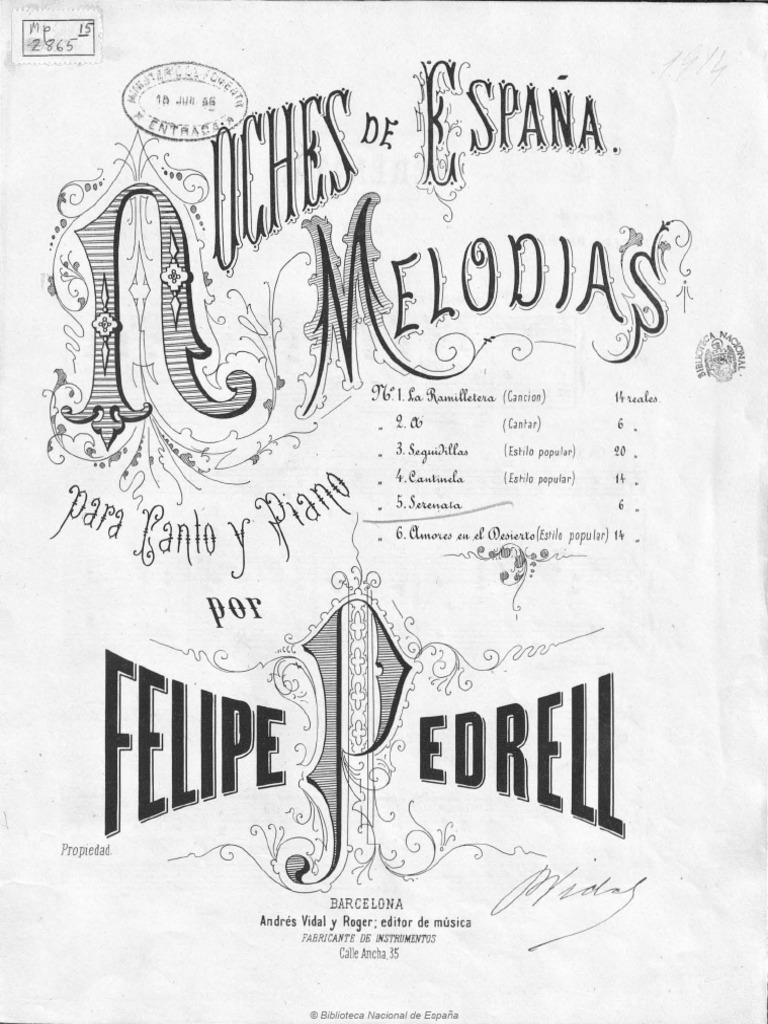 Mp 15
2865
1914
MINISTERIO DE FOMENTO
18 JUN 66
ENTRADA
NOCHES DE ESPAÑA.
MELODIAS
BIBLIOTECA NACIONAL
Nº 1. La Ramilletera (Cancion) 14 reales.
„ 2. A (Cantar) 6 „
„ 3. Seguidillas (Estilo popular) 20 „
„ 4. Cantinela (Estilo popular) 14 „
„ 5. Serenata 6 „
„ 6. Amores en el Desierto (Estilo popular) 14 „
para Canto y Piano
por
FELIPE PEDRELL
Propiedad.
BARCELONA
Andrés Vidal y Roger; editor de música
FABRICANTE DE INSTRUMENTOS
Calle Ancha, 35
AVidal
© Biblioteca Nacional de España